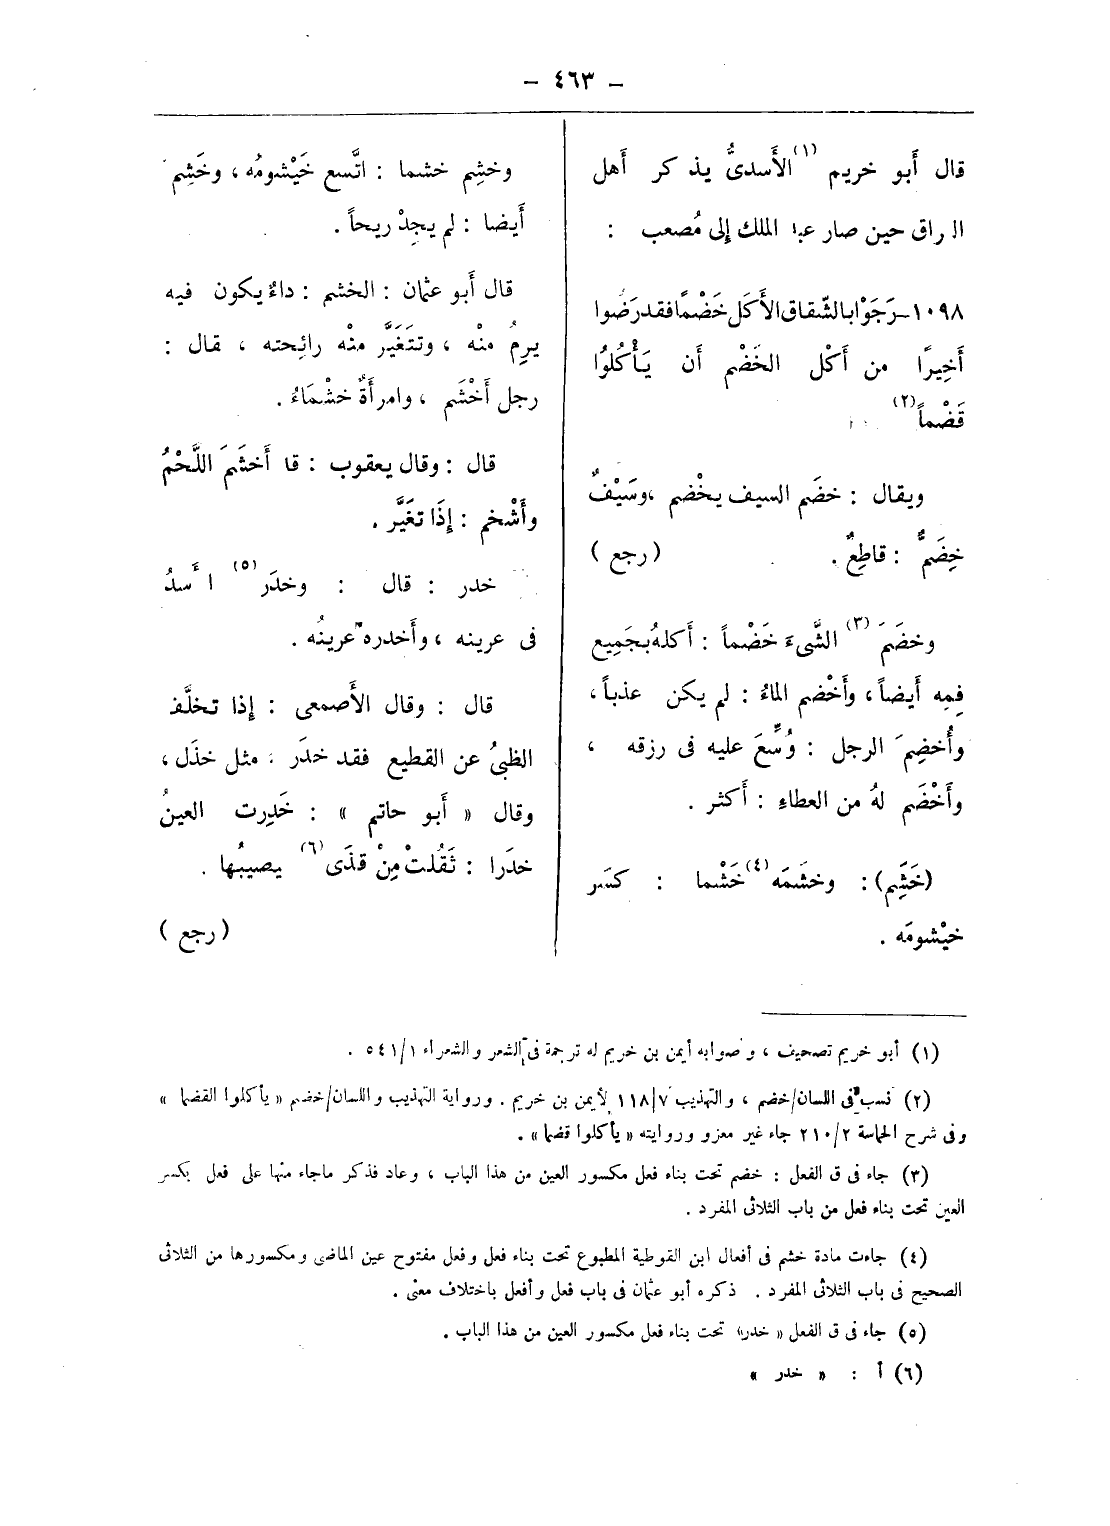 – ٤٦٣ –
قال أبو خريم (١) الأَسدىُّ يذكر أَهل
الراق حين صار عبد الملك إلى مُصعب :
١٠٩٨–رَجَوْا بالشّقاق الأَكل خَضْمًا فقد رَضُوا
أَخِيرًا من أَكْل الخَضْم أن يَأْكُلُوا
قَضْماً (٢)
ويقال : خضَم السيف يخْضم ، وسَيْفٌ
خِضَمٌّ : قاطِعٌ . (رجع)
وخضَمَ (٣) الشَّىءَ خَضْماً : أكلهُ بجَمِيع
فِمِه أَيضاً ، وأَخْضم الماءُ : لم يكن عذباً ،
وأُخضِمَ الرجل : وُسِّعَ عليه فى رزقه ،
وأَخْضَم لهُ من العطاءِ : أَكثر .
(خَشِم) : وخشَمَه (٤) خَشْما : كسَر
خيْشومَه .
وخشِم خشما : اتَّسع خَيْشومُه ، وخَشِم
أَيضا : لم يجِدْ ريحاً .
قال أَبو عثمان : الخشم : داءٌ يكون فيه
يرِمُ منْه ، وتتَغَيَّر منْه رائِحته ، قال :
رجل أَخْشَم ، وامرأَةٌ خشْمَاءُ .
قال : وقال يعقوب : قا أَخشَمَ اللَّحْمُ
وأَشْخم : إِذَا تغَيَّر .
خدر : قال : وخدَر (٥) ا أَسدُ
فى عرينه ، وأَخدره عرينُه .
قال : وقال الأَصمعى : إِذا تخلَّف
الظبىُ عن القطيع فقد خدَر ، مثل خذَل ،
وقال « أَبو حاتم » : خَدِرت العينُ
خدَرا : ثَقُلتْ مِنْ قذَى (٦) يصيبُها .
(رجع)
(١) أبو خريم تصحيف ، وصوابه أيمن بن خريم له ترجمة فى الشعر والشعراء ١/٥٤١ .
(٢) نسب فى اللسان/خضم ، والتهذيب ٧/١١٨ لأيمن بن خريم . ورواية التهذيب واللسان/خضم « يأكلوا القضما »
وفى شرح الحماسة ٢/٢١٠ جاء غير معزو وروايته « يأكلوا قضما » .
(٣) جاء فى ق الفعل : خضم تحت بناء فعل مكسور العين من هذا الباب ، وعاد فذكر ماجاء منها على فعل بكسر
العين تحت بناء فعل من باب الثلاثى المفرد .
(٤) جاءت مادة خشم فى أفعال ابن القوطية المطبوع تحت بناء فعل وفعل مفتوح عين الماضى ومكسورها من الثلاثى
الصحيح فى باب الثلاثى المفرد . ذكره أبو عثمان فى باب فعل وأفعل باختلاف معنى .
(٥) جاء فى ق الفعل « خدر» تحت بناء فعل مكسور العين من هذا الباب .
(٦) أ : « خدر »